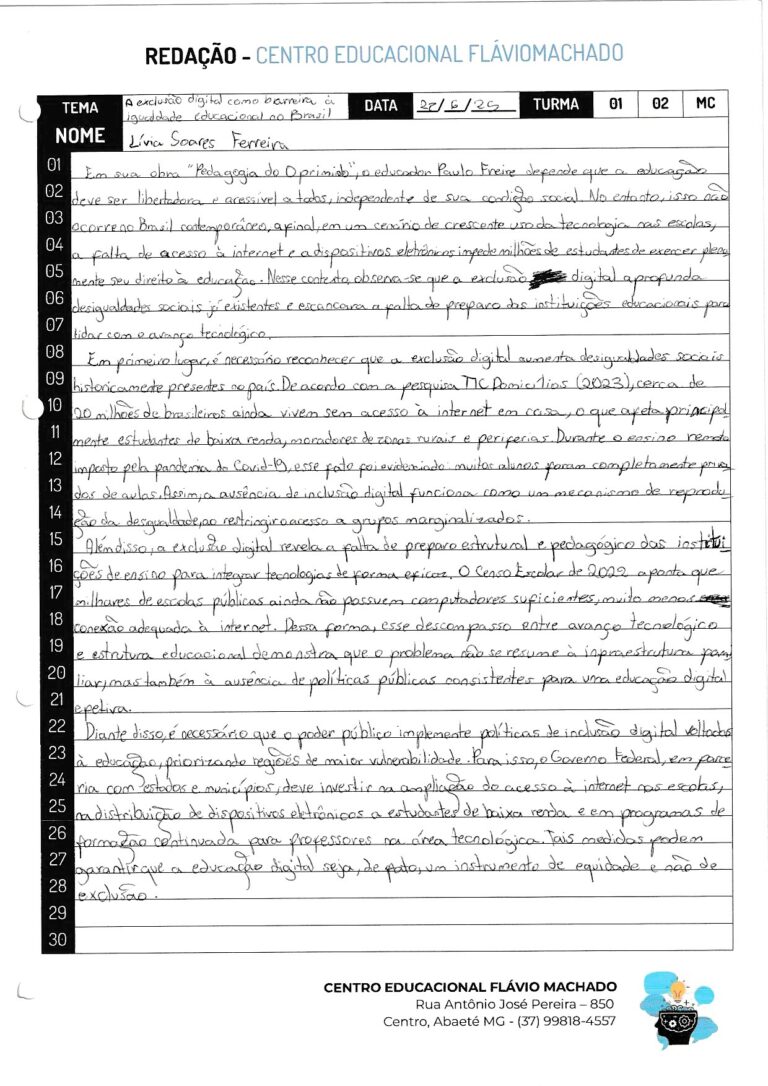 REDAÇÃO - CENTRO EDUCACIONAL FLÁVIOMACHADO
TEMA A exclusão digital como barreira à igualdade educacional no Brasil DATA 27/6/25 TURMA 01 02 MC
NOME Lívia Soares Ferreira
01 Em sua obra "Pedagogia do Oprimido", o educador Paulo Freire defende que a educação
02 deve ser libertadora e acessível a todos, independente de sua condição social. No entanto, isso não
03 ocorre no Brasil contemporâneo, afinal, em um cenário de crescente uso da tecnologia nas escolas,
04 a falta de acesso à internet e a dispositivos eletrônicos impede milhões de estudantes de exercer plena
05 mente seu direito à educação. Nesse contexto, observa-se que a exclusão digital aprofunda
06 desigualdades sociais já existentes e escancara a falta de preparo das instituições educacionais para
07 lidar com o avanço tecnológico.
08 Em primeiro lugar, é necessário reconhecer que a exclusão digital aumenta desigualdades sociais
09 historicamente presentes no país. De acordo com a pesquisa TIC Domicílios (2023), cerca de
10 20 milhões de brasileiros ainda vivem sem acesso à internet em casa, o que afeta principal
11 mente estudantes de baixa renda, moradores de zonas rurais e periferias. Durante o ensino remoto
12 imposto pela pandemia da Covid-19, esse fato foi evidenciado: muitos alunos foram completamente priva
13 dos de aulas. Assim, a ausência de inclusão digital funciona como um mecanismo de reprodu
14 ção da desigualdade, ao restringir o acesso a grupos marginalizados.
15 Além disso, a exclusão digital revela a falta de preparo estrutural e pedagógico das institui
16 ções de ensino para integrar tecnologias de forma eficaz. O Censo Escolar de 2022 aponta que
17 milhares de escolas públicas ainda não possuem computadores suficientes, muito menos
18 conexão adequada à internet. Dessa forma, esse descompasso entre avanço tecnológico
19 e estrutura educacional demonstra que o problema não se resume à infraestrutura fami
20 liar, mas também à ausência de políticas públicas consistentes para uma educação digital
21 efetiva.
22 Diante disso, é necessário que o poder público implemente políticas de inclusão digital voltadas
23 à educação, priorizando regiões de maior vulnerabilidade. Para isso, o Governo Federal, em parce
24 ria com estados e municípios, deve investir na ampliação do acesso à internet nas escolas,
25 na distribuição de dispositivos eletrônicos a estudantes de baixa renda e em programas de
26 formação continuada para professores na área tecnológica. Tais medidas podem
27 garantir que a educação digital seja, de fato, um instrumento de equidade e não de
28 exclusão.
29
30
CENTRO EDUCACIONAL FLÁVIO MACHADO
Rua Antônio José Pereira – 850
Centro, Abaeté MG - (37) 99818-4557